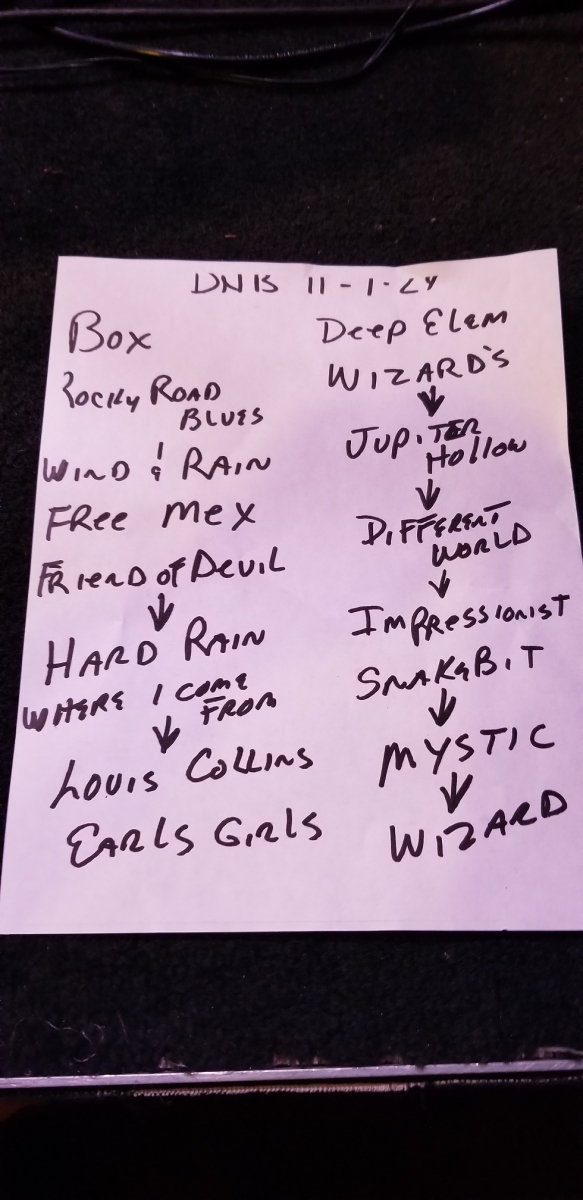 DNIS 11-1-24
Box
Rocky Road
Blues
Wind & Rain
Free Mex
Friend of Devil
↓
Hard Rain
Where I Come
From
↓
Louis Collins
Earls Girls
Deep Elem
Wizard's
↓
Jupiter
Hollow
↓
Different
World
↓
Impressionist
SnakeBit
↓
Mystic
↓
Wizard